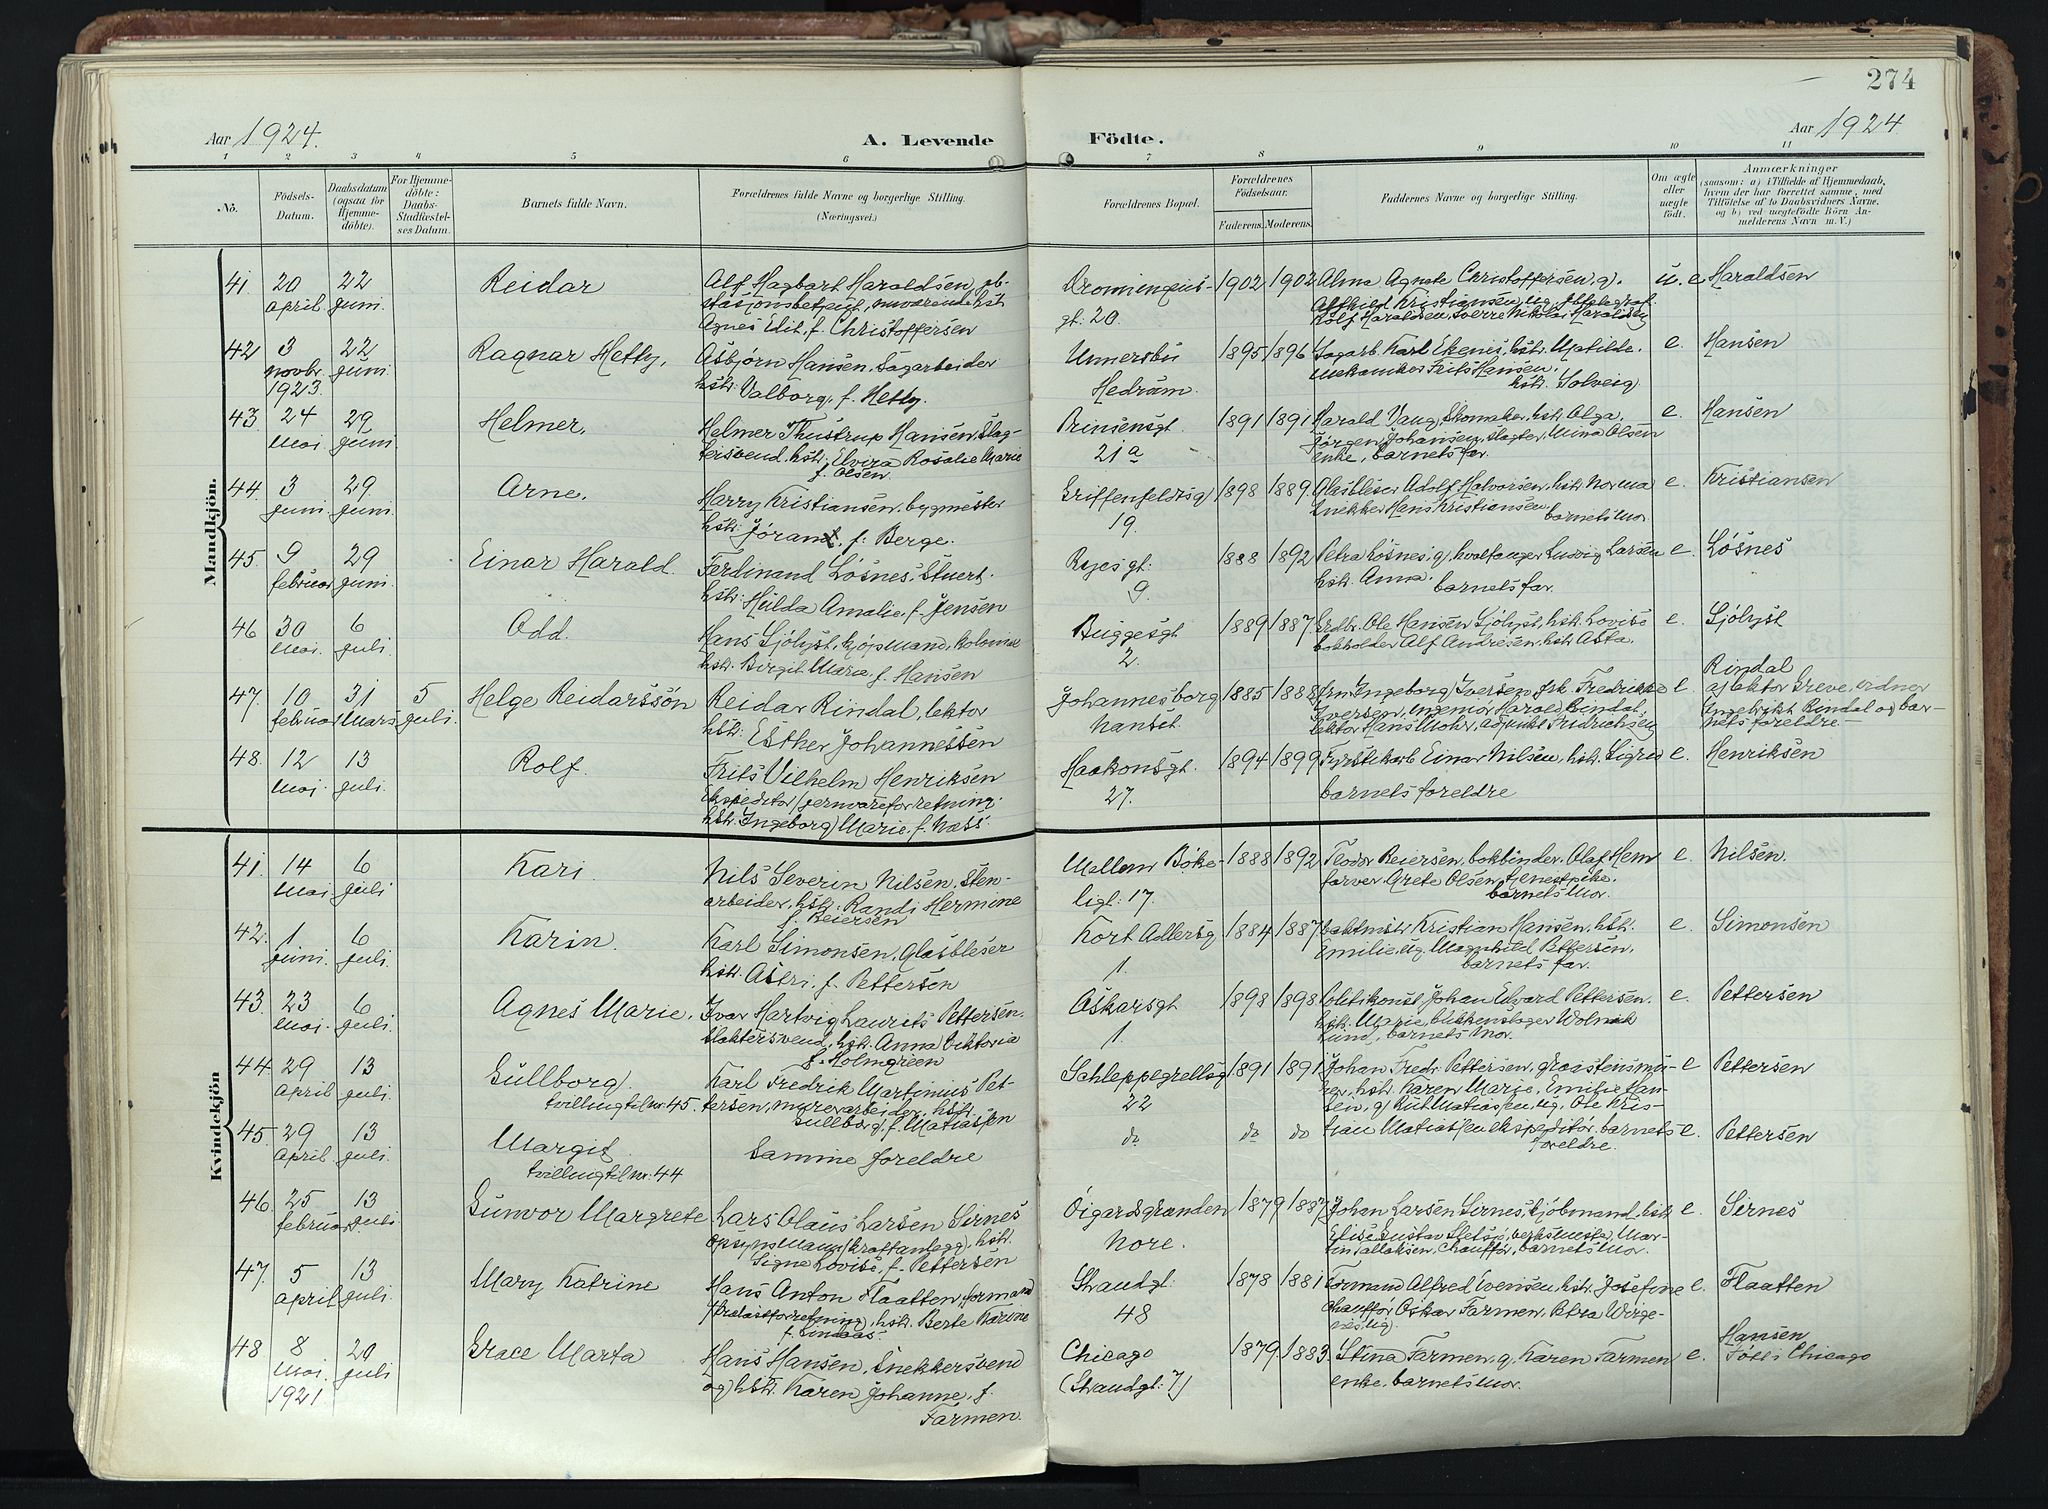 274
Aar 1924.
A. Levende
Födte.
Aar 1924
1 2 3 4 5 6 7 8 9 10 11
No.
Födsels-Datum.
Daabsdatum (ogsaa for Hjemme-döbte).
For Hjemme-döbte: Daabs-Stadfæstel-ses Datum.
Barnets fulde Navn.
Forældrenes fulde Navne og borgerlige Stilling.
(Næringsvei.)
Forældrenes Bopæl.
Forældrenes Födselsaar.
Faderens. Moderens.
Faddernes Navne og borgerlige Stilling.
Om ægte eller uægte födt.
Anmærkninger
(saasom: a) i Tilfælde af Hjemmedaab, hvem der har forrettet samme, med Tilföielse af to Daabsvidners Navne, og b) ved uægtefödte Börn An-melderens Navn m. V.)
Mandkjön.
41 20 april. 22 juni. Reidar
Alf Hagbart Haraldsen, jb-
stasjonsbetjent, nuværende hst.
Agnes Edit, f. Christoffersen
Dronningens-
gt. 20.
1902 1902
Alma Agnete Christoffersen, g.
Alfhild Kristiansen, ug.
Rolf Haraldsen, Sverre Nikolai Haraldsen
u. e Haraldsen
42 3 novbr. 1923. 22 juni. Ragnar Hetty,
Asbjørn Hansen, Sagarbeider
hst. Valborg, f. Hetty.
Unnersbu
Hedrum.
1895 1896
Sagarb. Karl Ekenes, hst. Matilde.
Mekaniker Frits Hansen,
hst. Solveig.
e. Hansen
43. 24 mai. 29 juni. Helmer.
Helmer Thustrup Hansen, Slag-
tersvend, hst. Elvira Rosalie Marie
f. Olsen.
Prinsensgt.
21a
1891 1891
Harald Vaug, Skomaker, hst. Olga.
Jørgen Johansen, slagter, Mina Olsen
enke, barnets far.
e. Hansen
44. 3 juni. 29 juni. Arne.
Harry Kristiansen, bygmester
hst: Jøran, f. Berge.
Griffenfeldtsg
19.
1898 1889
Glasbleser Adolf Halvorsen, hst. Norma
Snekker Hans Kristiansen
barnets mor.
e. Kristiansen
45. 9 februar 29 juni. Einar Harald.
Ferdinand Løsnes, Stuert.
hst: Hilda Amalie, f. Jensen
Rejesgt.
9.
1888 1892
Petra Løsnes, g, hvalfanger Ludvig Larsen
hst. Anna.
barnets far.
e. Løsnes
46 30 mai. 6 juli. Odd.
Hans Sjölyst, kjøpmand, kolonial
hst. Birgit Marie, f. Hansen
Buggesgt
2.
1889 1887
Ole Hansen Sjölyst, hst. Lovise
bokholder Alf Andresen, hst. Asta.
e. Sjölyst
47. 10 februar 31 mars 5 juli. Helge Reidarssön
Reidar Rindal, lektor
hst: Esther Johannessen
Johannesborg
Nanset
1885 1888
Frn. Ingeborg Iversen, frk Fredrikke
Iversen, Ingeniør Harald Rindal,
lektor Hans Mohr, Adjunkt Fridrichsen
e. Rindal
a) lektor Greve, vidner
Ingebrikt Rindal og bar-
nets foreldre.
48. 12 mai. 13 juli. Rolf.
Frits Vilhelm Henriksen
ekspeditør (jernvareforretning.
hst. Ingeborg Marie, f. Næss.
Haakonsgt.
27.
1894 1899
Fyrstikarb Einar Nilsen, hst. Sigrid
barnets foreldre
e. Henriksen
Kvindekjön
41. 14 mai. 6 juli Kari.
Nils Severin Nilsen, Sten-
arbeider, hst: Randi Hermine
f. Beiersen
Mellom Böke-
ligt. 17.
1888 1892
Teodor Beiersen, bokbinder, Olaf Hem
farver. Grete Olsen, tjenestpike.
barnets mor.
e. Nilsen.
42. 1 juni. 6 juli. Karin.
Karl Simonsen, Glasbleser
hst. Astri, f. Pettersen
Kort Adlersg
1.
1884 1887
Vaktmstr Kristian Hansen, hst.
Emilie, ug. Magnhild Pettersen,
barnets far.
e. Simonsen
43. 23 mai. 6 juli. Agnes Marie.
Ivar Hartvig Laurits Pettersen.
slaktersvend, hst. Anna Viktoria
f. Holmgreen
Oskarsgt
1.
1898 1898
Politikonst. Johan Edvard Pettersen.
hst. Marie, blikkenslager Wolmar
Lund, barnets mor.
e. Pettersen
44. 29 april 13 juli. Gullborg.
tvilling til nr. 45.
Karl Fredrik Martinius Pet-
tersen, murerarbeider, hst.
Gullborg, f. Matiassen
Schleppegrellsg
22
1891 1891
Johan Fredr Pettersen, graastensmu-
rer, hst. Karen Marie, Emilie Han-
sen, g, Rut Matiassen, ug. Ole Kris-
e Pettersen
45. 29 april. 13 juli. Margit.
tvilling til nr. 44
Samme foreldre
do do do
tian Matiassen ekspeditör. barnets
foreldre.
e. Pettersen
46. 25 februar 13 juli Gunvor Margrete
Lars Olaus Larsen Sirnes
opsynsmann (kraftanlegg), hst.
Signe Lovise, f. Pettersen
Öigardsgranden
Nore.
1879 1887
Johan Larsen Sirnes, kjöbmand, hst
Elise, Gustav Sletsjø, verksmester, Mar-
tin Jallaksen, Chauffør, barnets mor.
e. Sirnes
47. 5 april 13 juli. Mary Katrine
Hans Anton Flaatten, formand
, hst. Berte Karine
f. Lindaas
Strandgt.
48
1878 1881
Formand Alfred Evensen, hst. Josefine
chauffør Oskar Farmen, Petra Wirge-
nes, ug.
e. Flaatten
48 8 mai. 1921 20 juli Grace Marta
Hans Hansen, Snekkersvend
og hst. Karen Johanne, f.
Farmen.
Chicago
(Strandgt. 7)
1879 1883
Stina Farmen, g, Karen Farmen
enke, barnets mor.
e. Hansen
Født i Chicago